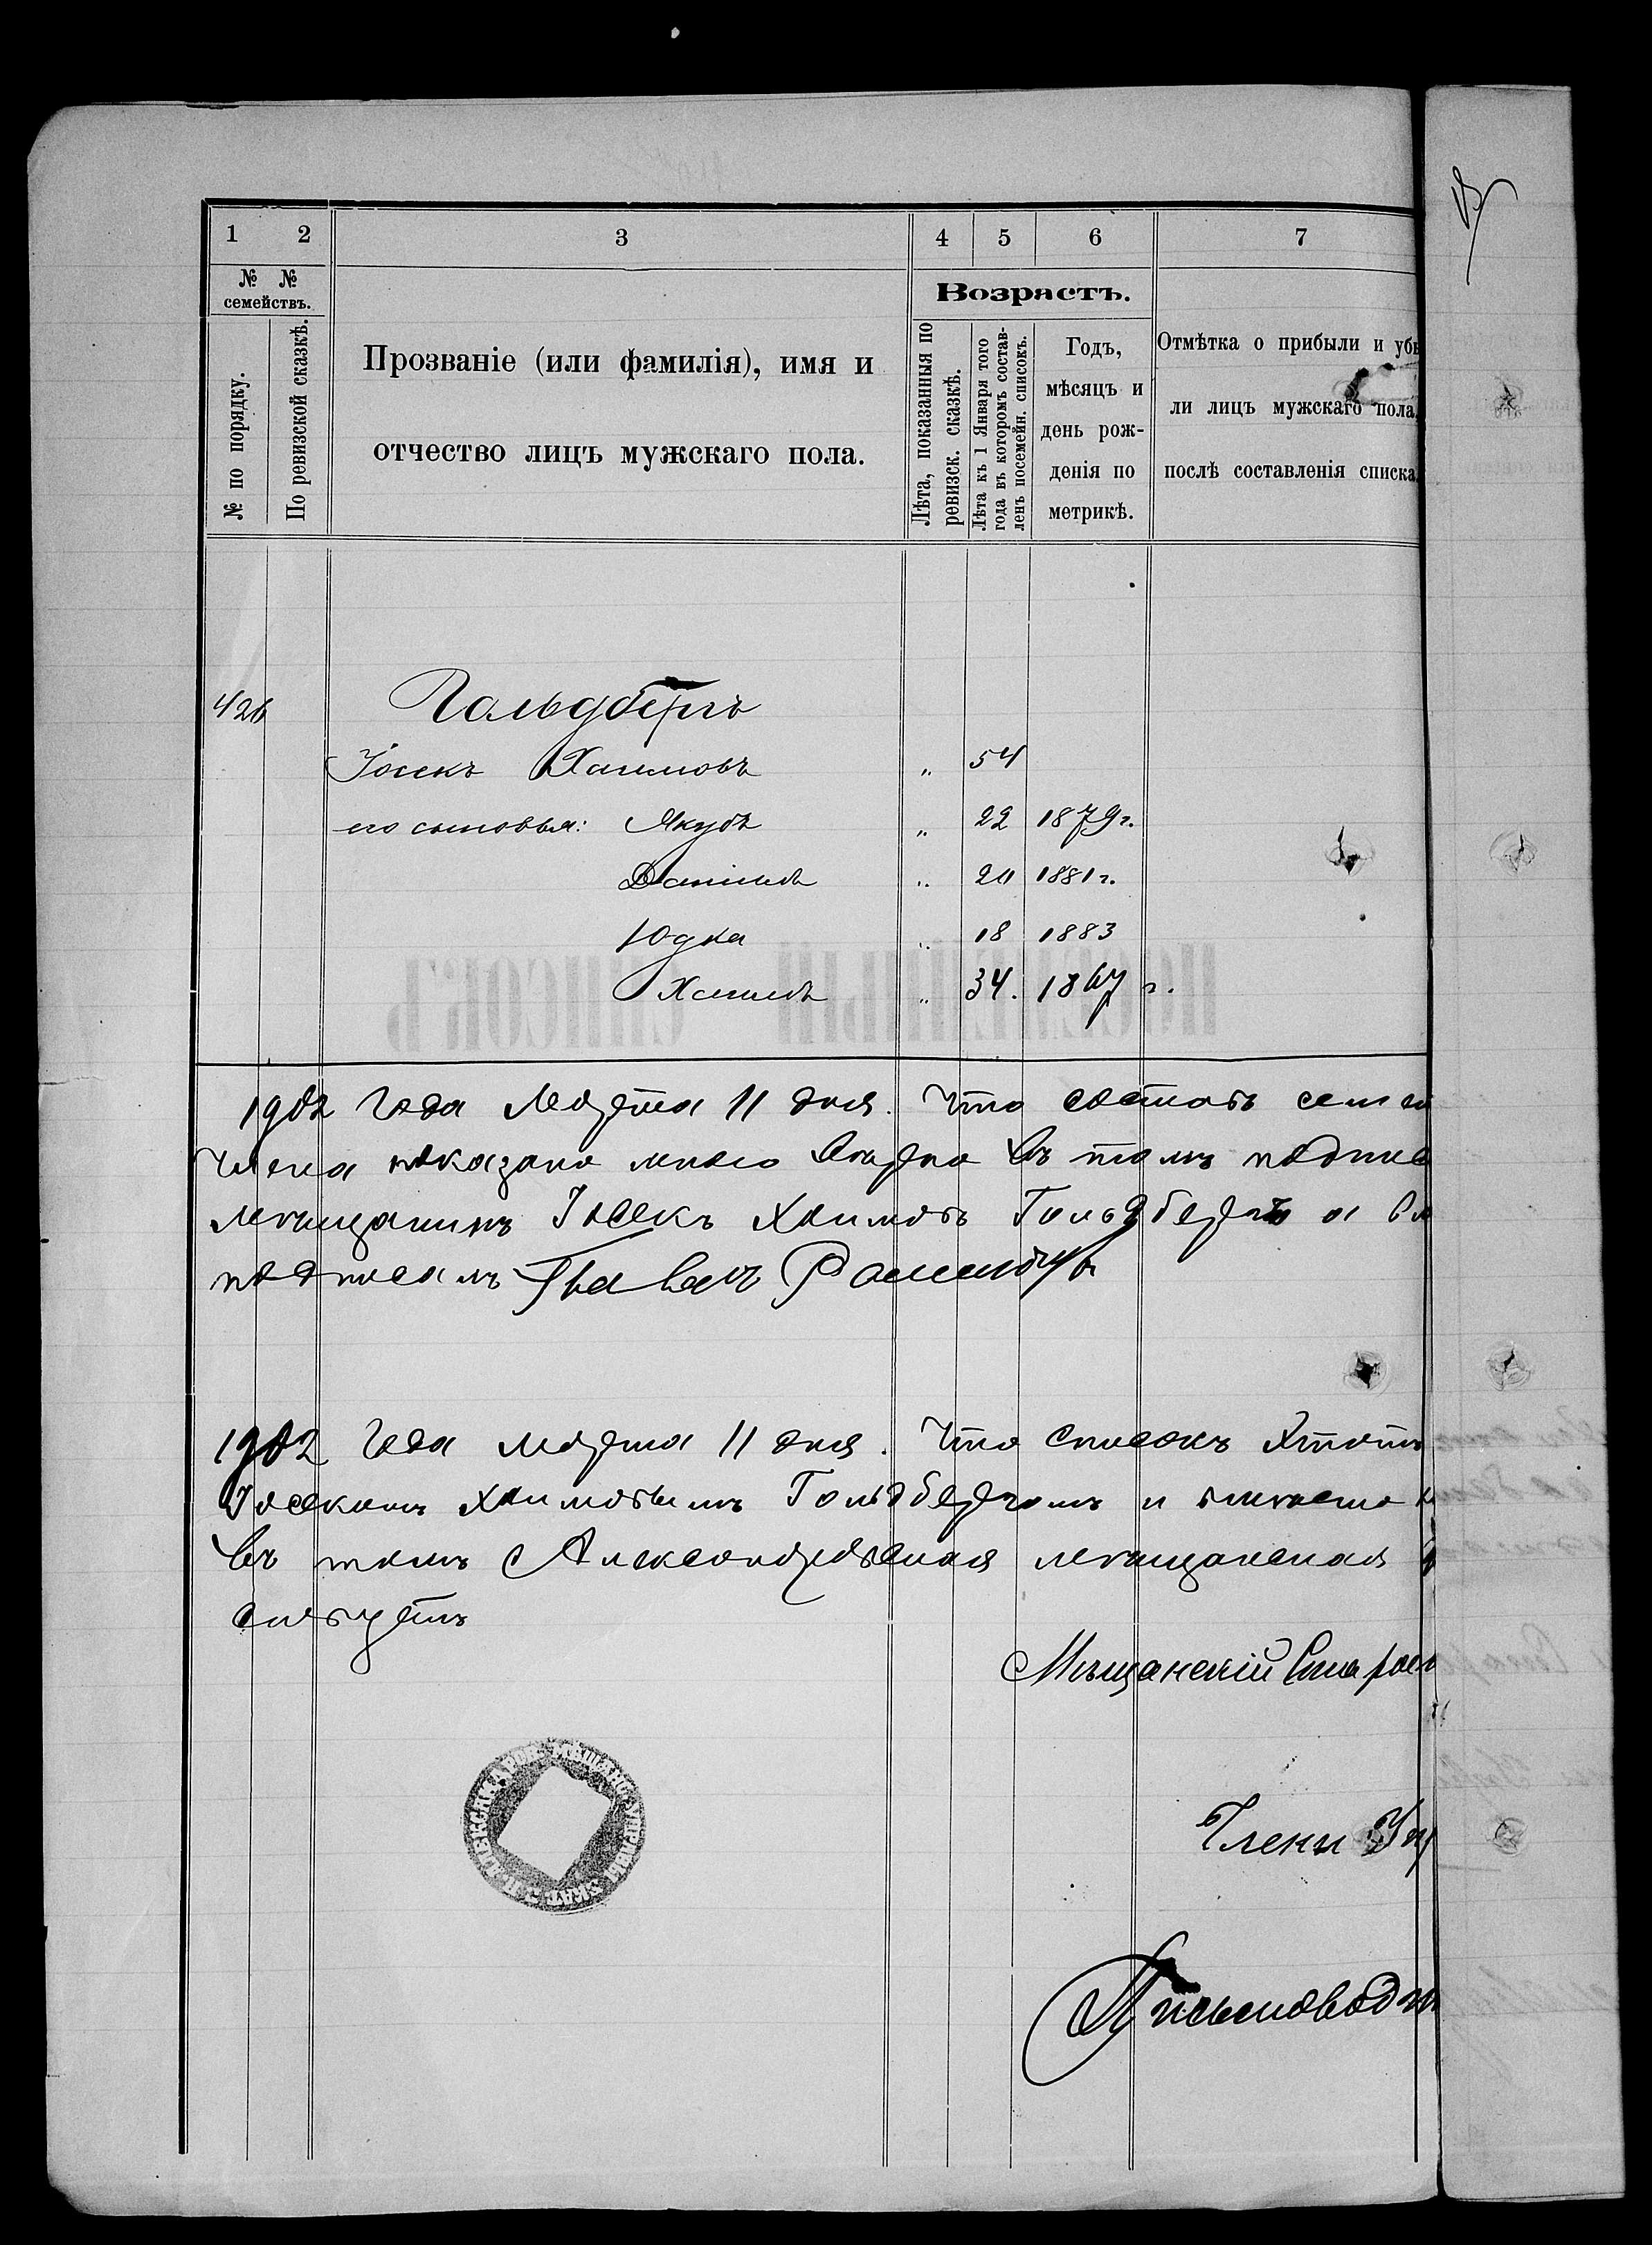 1 2 3 4 5 6 7
№ № семействъ.
№ по порядку.
По ревизской сказкѣ.
Прозваніе (или фамилія), имя и
отчество лицъ мужскаго пола.
Возрастъ.
Лѣта, показанныя по
ревизск. сказкѣ.
Лѣта къ 1 Января того
года въ которомъ состав-
ленъ посемейн. списокъ.
Годъ,
мѣсяцъ и
день рож-
денія по
метрикѣ.
Отмѣтка о прибыли и убы
ли лицъ мужскаго пола,
послѣ составленія списка.
426 Гольдбергъ
Іосекъ Хаимовъ „ 54
его сыновья: Якубъ „ 22 1879 г.
Данiилъ „ 20 1881 г.
Юдка „ 18 1883
Хаимъ „ 34. 1867 г.
1902 года Марта 11 дня. Что составъ семей
члена показано мною верно въ томъ подпис
мещанинъ Іосекъ Хаимовъ Гольдбергъ а
подписалъ
1902 года Марта 11 дня. Что списокъ этотъ
Іосекомъ Хаимовымъ Гольдбергомъ и
въ томъ Александровская мещанская
Мѣщанскій Старос
Члены Уп
Письмоводи